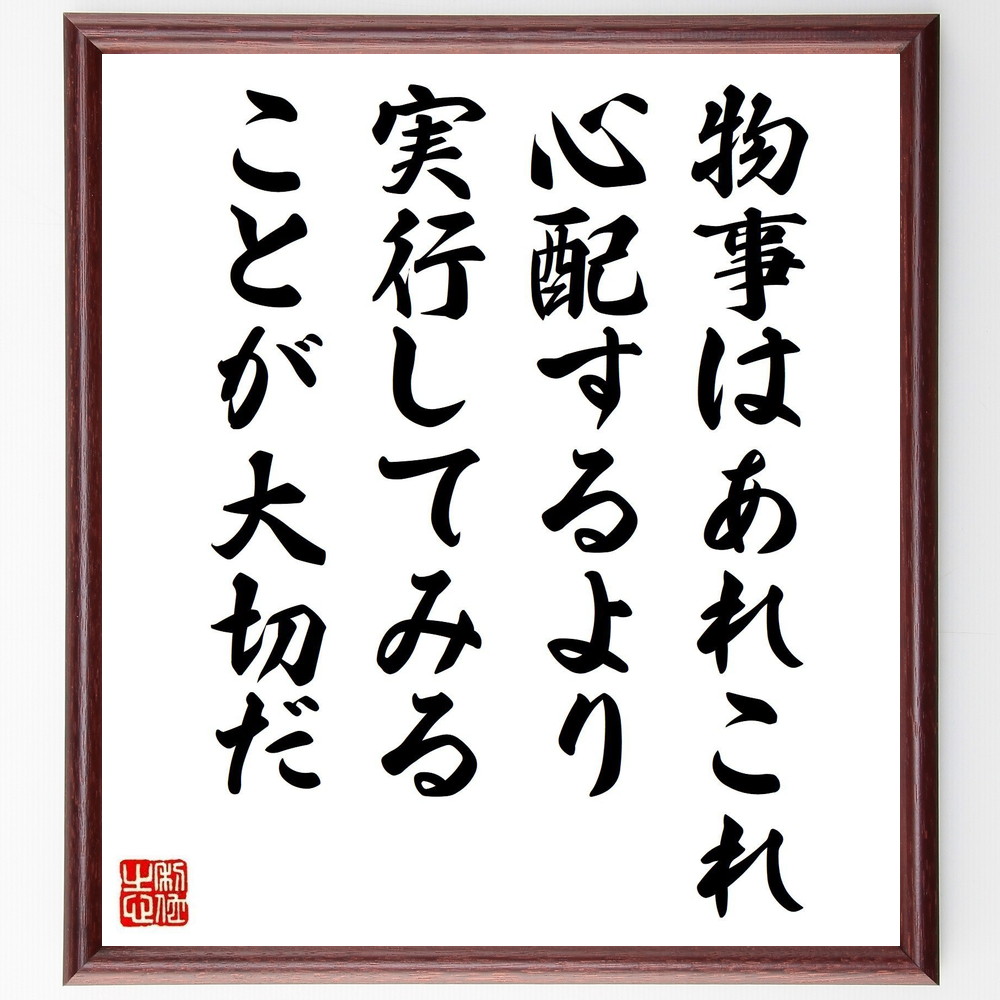 物事はあれこれ
心配するより
実行してみる
ことが大切だ